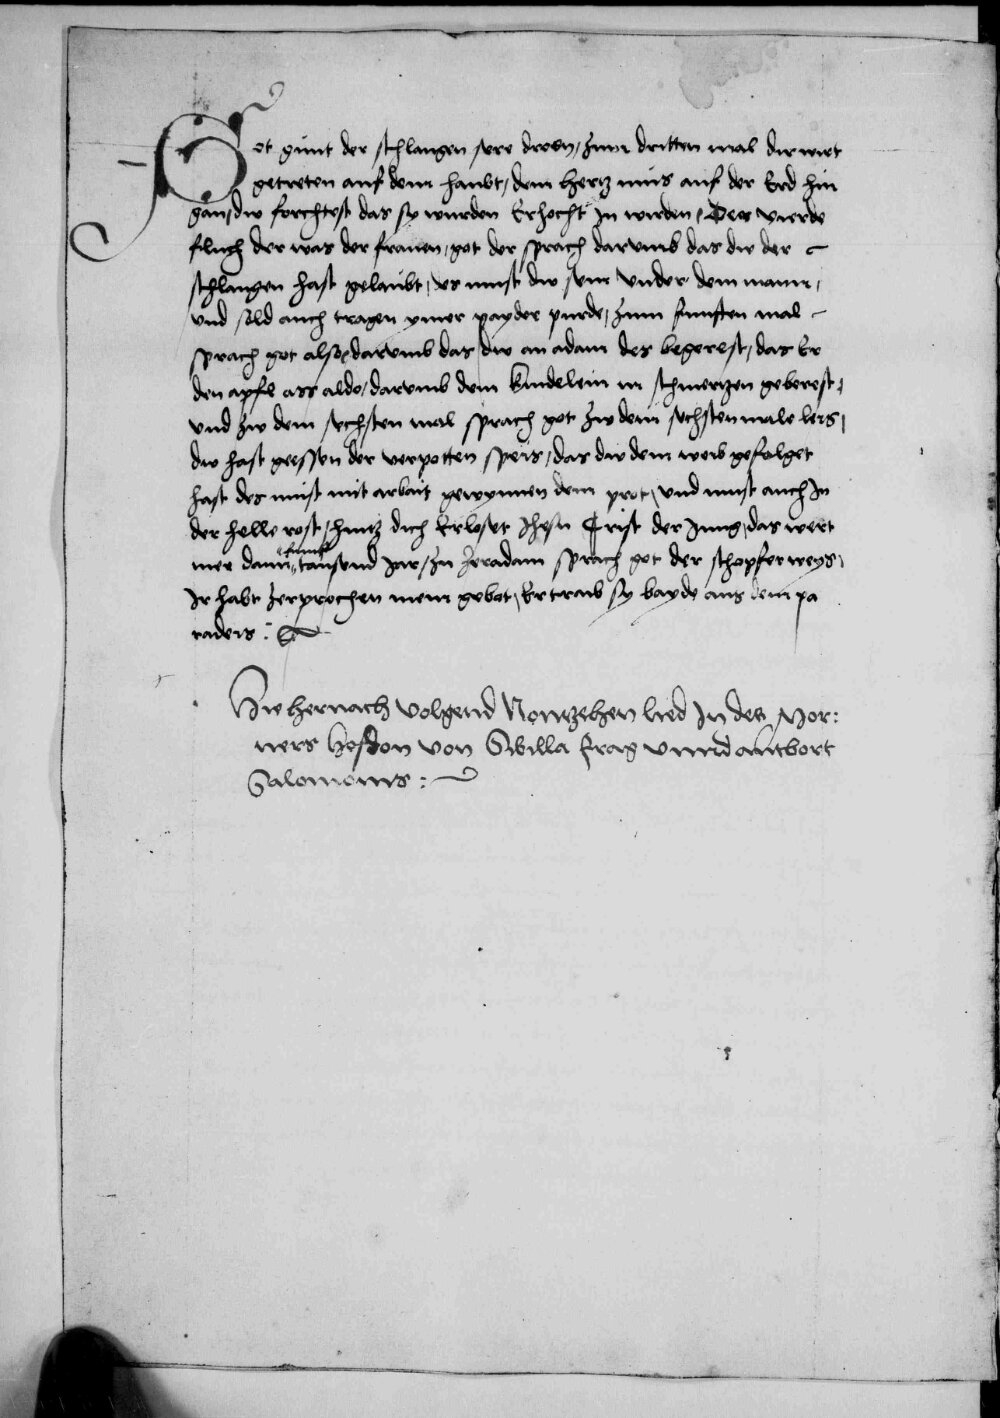 Got gunt der schlangen sere droen / zum dritten mal dir wirt
getreten auf dein haubt / dein hertz mus auf der Erd hin
gan / dw forchtest das sy wurden Erhocht in wirden / Der vierde
fluch der was der frauen / got der sprach darumb das dw der
schlangen hast gelaubt / es must dw sein vnder dem mann /
vnd sold auch tragen ymer payder purde / zum funften mal
sprach got also / darumb das dw an adam des begerest / das Er
den apfl ass aldo / darumb dein kindelein in schmertzen geberest /
vnd zw dem sechsten mal sprach got zw dem sechsten male leis /
dw hast geessen der verpotten speis / das dw dem weib gefolget
hast des must mit arbait gewynnen dein prot / vnd must auch In
der helle rost / huntz dich Erloset Jhesu Crist der Jung / das wert
mer dann funf tausend Jar / zu her adam sprach got der schopfer weys /
Ir habt zerprochen mein gebot / Er traib sy bayde aus dem pa
radeis :
Hie hernach volgend Newntzehen lied In des Mor:
ners hofdon von Sibilla frag vnnd antbort
Salomonis :